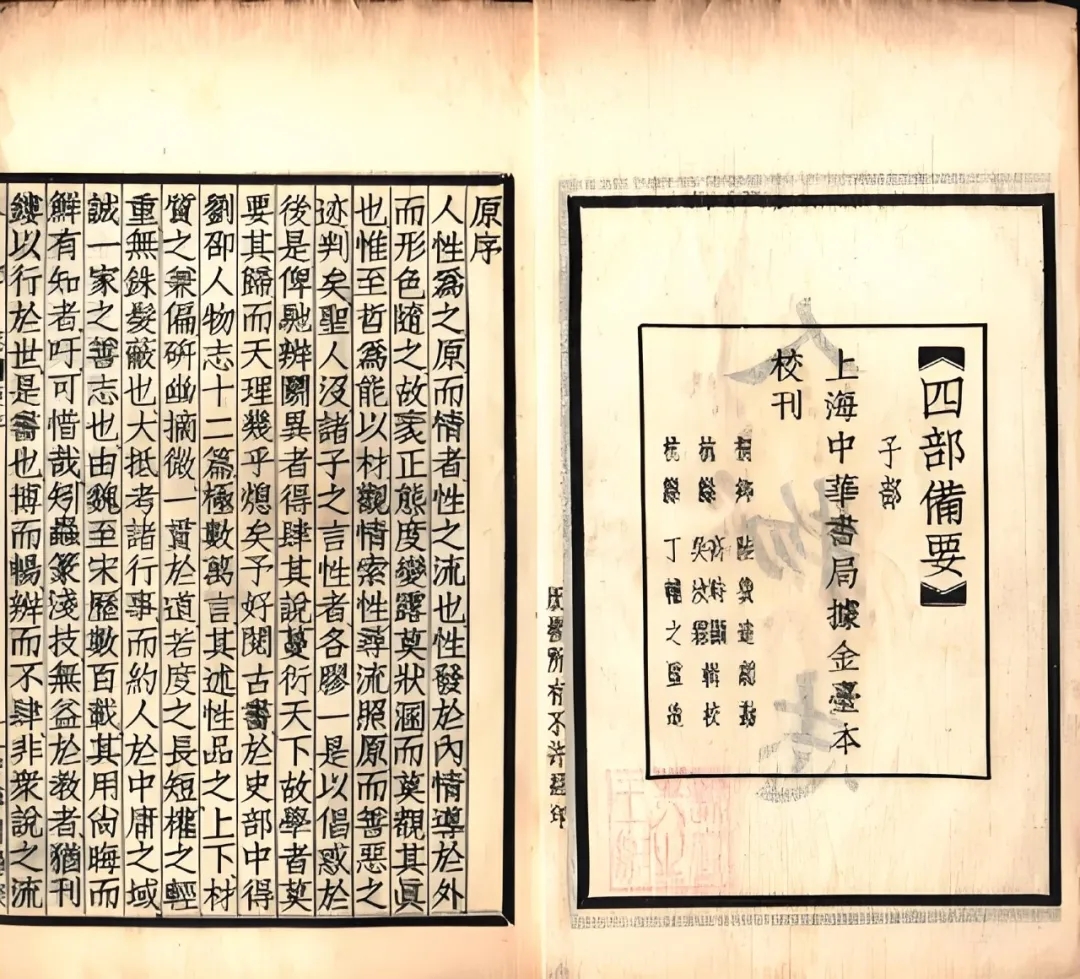 《四部備要》
子部
上海中華書局據金臺本
校刊
桐鄉 陸費逵總勘
杭縣 輯校
杭縣 丁輔之監造
人物志
版權所有不許翻印
原序
人性爲之原而情者性之流也性發於內情導於外
而形色隨之故衺正態度變露莫狀溷而莫觀其眞
也惟至哲爲能以材觀情索性尋流照原而善惡之
迹判矣聖人沒諸子之言性者各膠一是以倡惑於
後是俾馳辨鬭異者得肆其說蔓衍天下故學者莫
要其歸而天理幾乎熄矣予好閱古書於史部中得
劉邵人物志十二篇極數萬言其述性品之上下材
質之兼偏硏幽摘微一貫於道若度之長短權之輕
重無銖髮蔽也大抵考諸行事而約人於中庸之域
誠一家之善志也由魏至宋歷數百載其用尙晦而
鮮有知者吁可惜哉矧蟲篆淺技無益於教者猶刊
鏤以行於世是書也博而暢辨而不肆非衆說之流